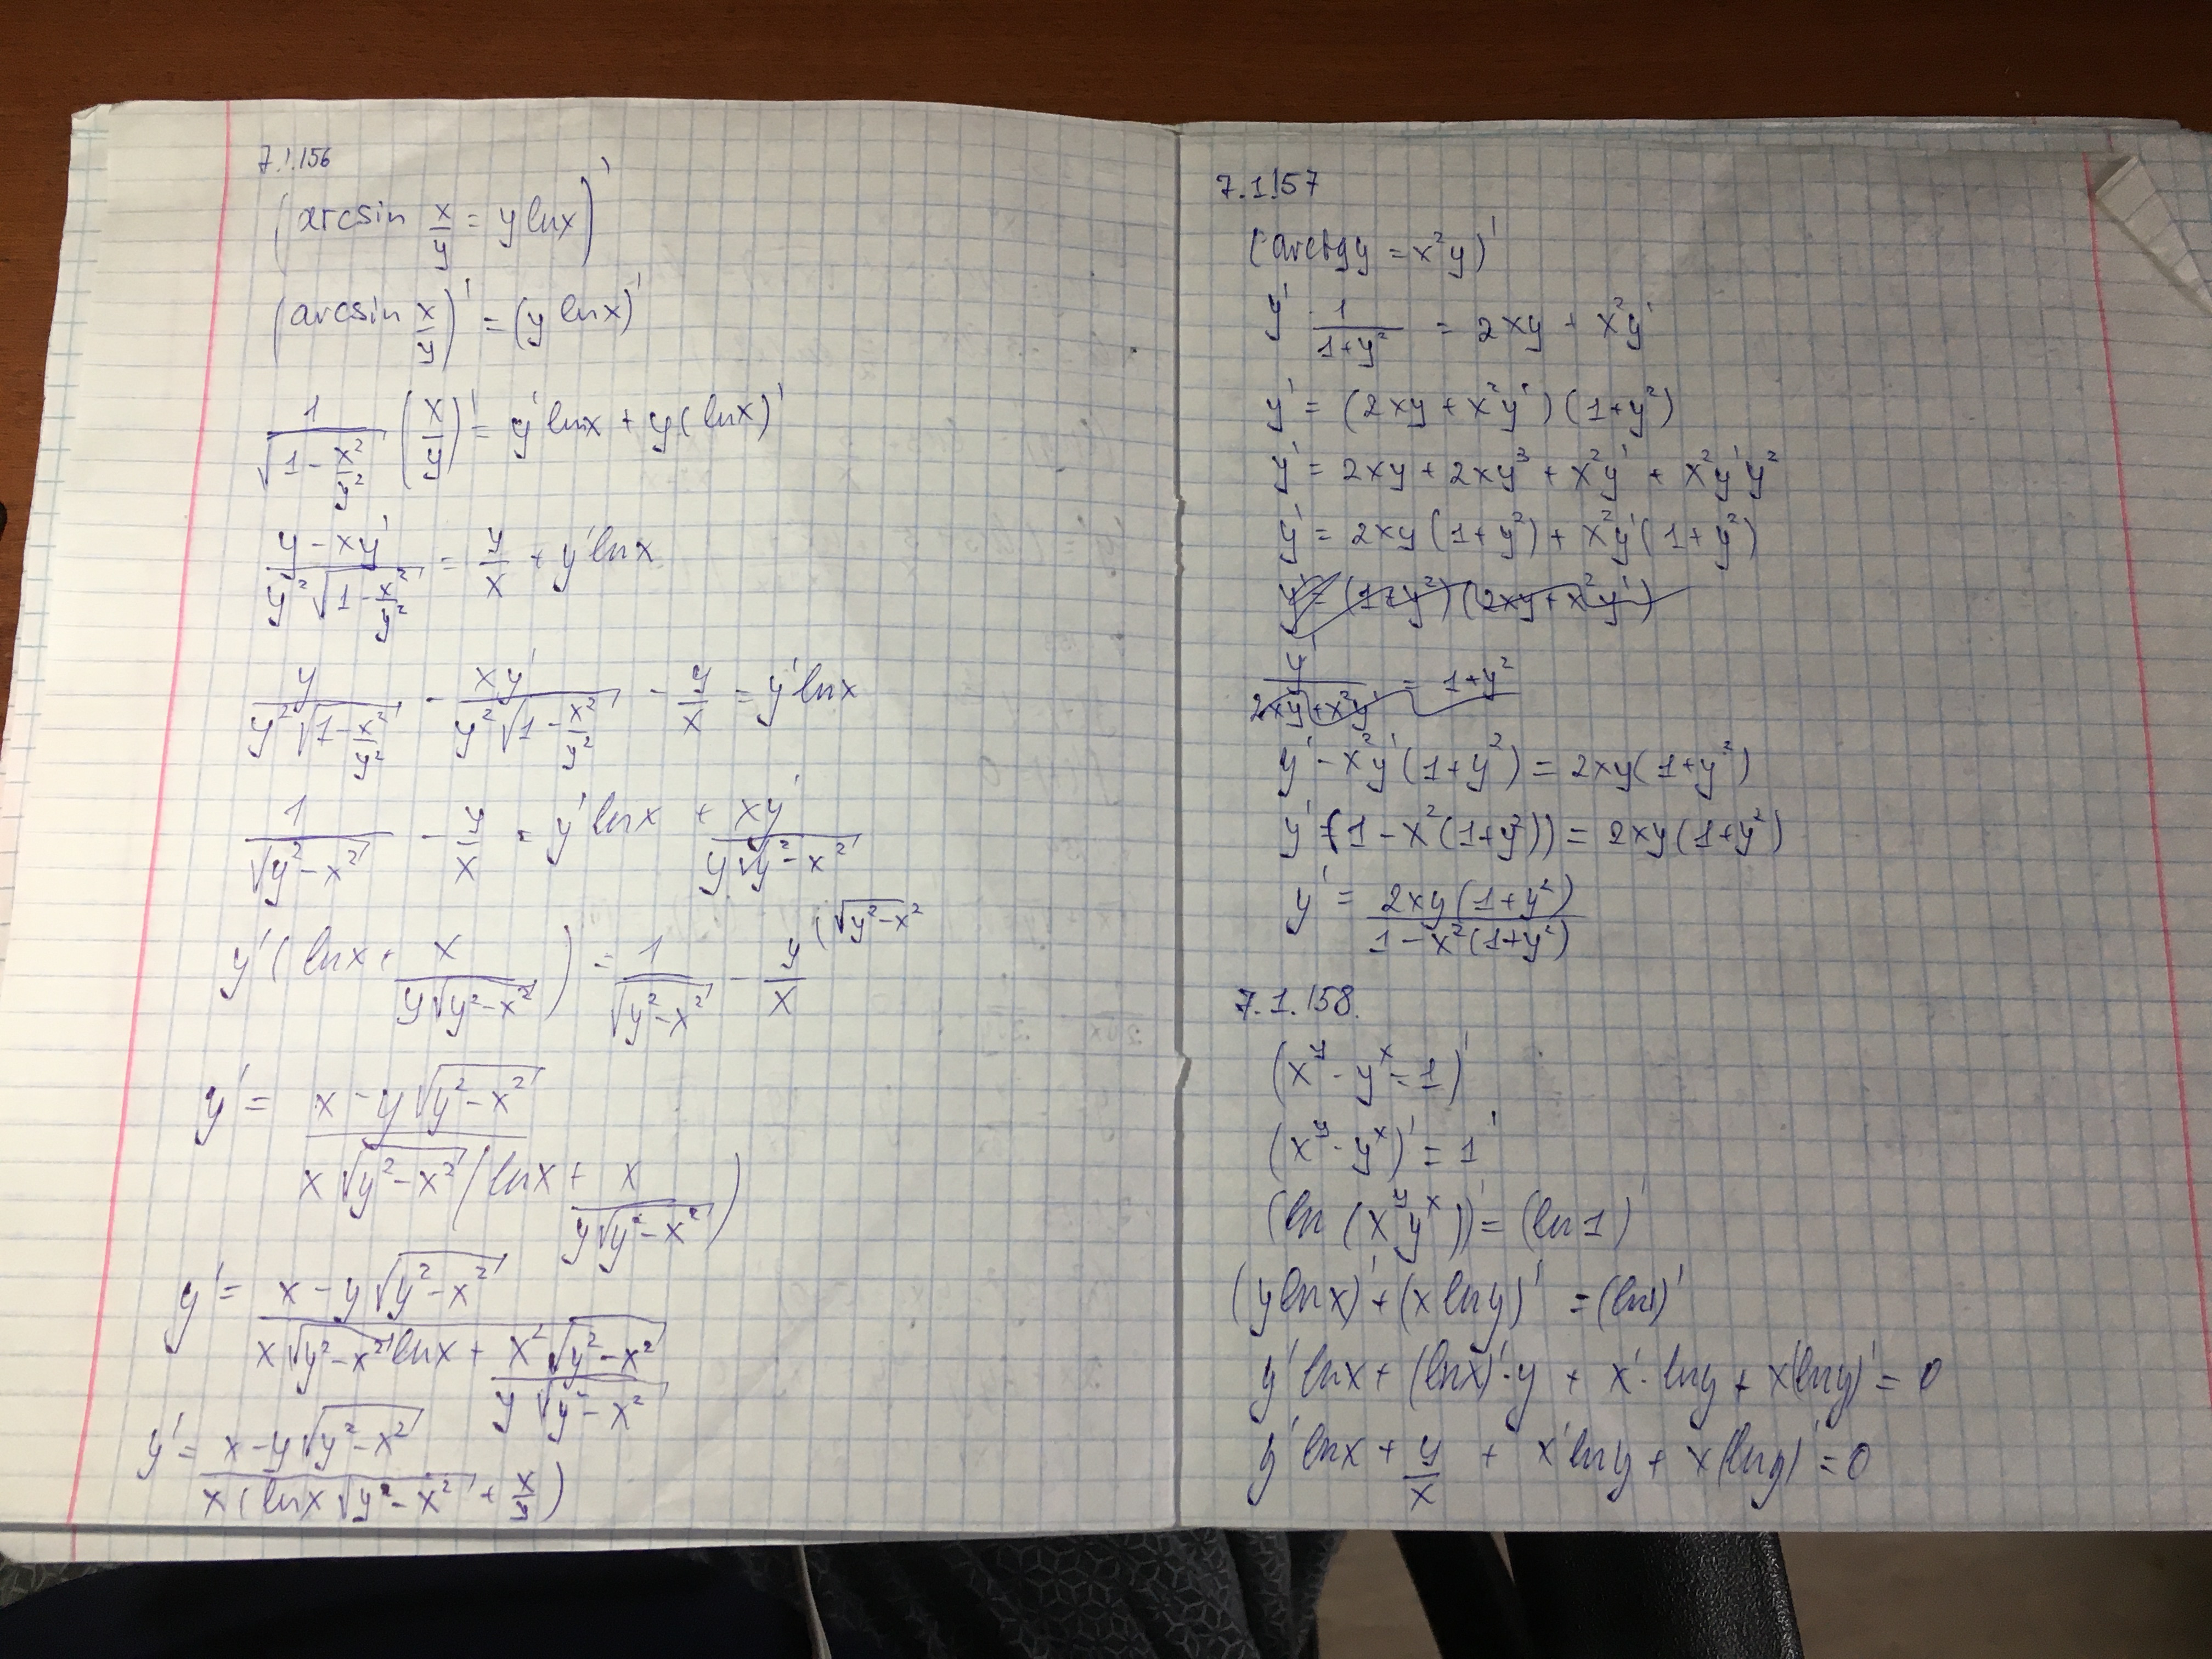 7.1.156
(arcsin x/y = y lnx)'
(arcsin x/y)' = (y lnx)'
1/√(1 - x²/y²) (x/y)' = y' lnx + y(lnx)'
(y - xy')/(y²√(1 - x²/y²)) = y/x + y'lnx
y/(y²√(1 - x²/y²)) - xy'/(y²√(1 - x²/y²)) - y/x = y'lnx
1/√(y² - x²) - y/x = y'lnx + xy'/(y√(y² - x²))
y'(lnx + x/(y√(y² - x²))) = 1/√(y² - x²) - y/x (√(y² - x²)
y' = (x - y√(y² - x²))/(x√(y² - x²)(lnx + x/(y√(y² - x²))))
y' = (x - y√(y² - x²))/(x√(y² - x²) lnx + x²√(y² - x²)/(y√(y² - x²)))
y' = (x - y√(y² - x²))/(x(lnx√(y² - x²) + x/y))
7.1.157
(arctgy = x²y)'
y' · 1/(1+y²) = 2xy + x²y'
y' = (2xy + x²y')(1+y²)
y' = 2xy + 2xy³ + x²y' + x²y'y²
y' = 2xy(1+y²) + x²y'(1+y²)
y' = (1+y²)(2xy + x²y')
y'/(2xy + x²y') = 1+y²
y' - x²y'(1+y²) = 2xy(1+y²)
y'(1 - x²(1+y²)) = 2xy(1+y²)
y' = 2xy(1+y²)/(1 - x²(1+y²))
7.1.158.
(x^y · y^x = 1)'
(x^y · y^x)' = 1'
(ln(x^y y^x))' = (ln1)'
(y lnx)' + (x lny)' = (ln1)'
y' lnx + (lnx)' · y + x' · lny + x(lny)' = 0
y' lnx + y/x + x'lny + x(lny)' = 0